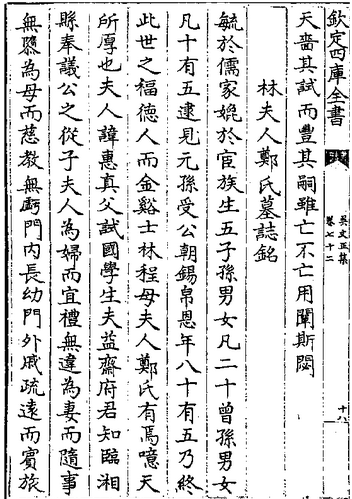 欽定四庫全書
吳文正集
卷七十二
十八
天嗇其試而豐其嗣雖亡不亡用闡斯閟
林夫人鄭氏墓誌銘
毓於儒家媲於宦族生五子孫男女凡二十曾孫男女
凡十有五逮見元孫受公朝錫帛恩年八十有五乃終
此世之福德人而金谿士林程母夫人鄭氏有焉噫天
所厚也夫人諱惠真父試國學生夫益齋府君知臨湘
縣奉議公之從子夫人為婦而宜禮無違為妻而隨事
無隳為母而慈教無虧門内長幼門外戚疏遠而賓旅